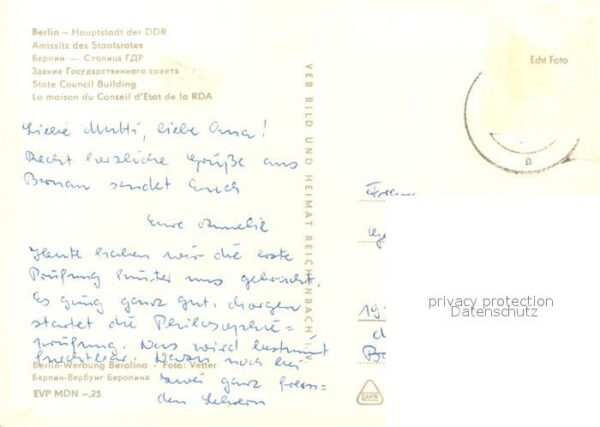 Berlin – Hauptstadt der DDR
Amtssitz des Staatsrates
Берлин — Столица ГДР
Здание Государственного совета
State Council Building
La maison du Conseil d'Etat de la RDA
Liebe Mutti, liebe Oma!
Recht herzliche Grüße aus
Bernau sendet Euch
Eure
Heute haben wir die erste
Prüfung hinter uns gebracht.
Es ging ganz gut. Morgen
startet die Philosophie=
prüfung. Das wird bestimmt
noch bei
zwei ganz frem=
den Lehrern
Berlin-Werbung Berolina · Foto: Vetter
Берлин-Вербунг Беролина
EVP MDN –,25
VEB BILD UND HEIMAT REICHENBACH I. V.
Echt Foto
a
privacy protection
Datenschutz